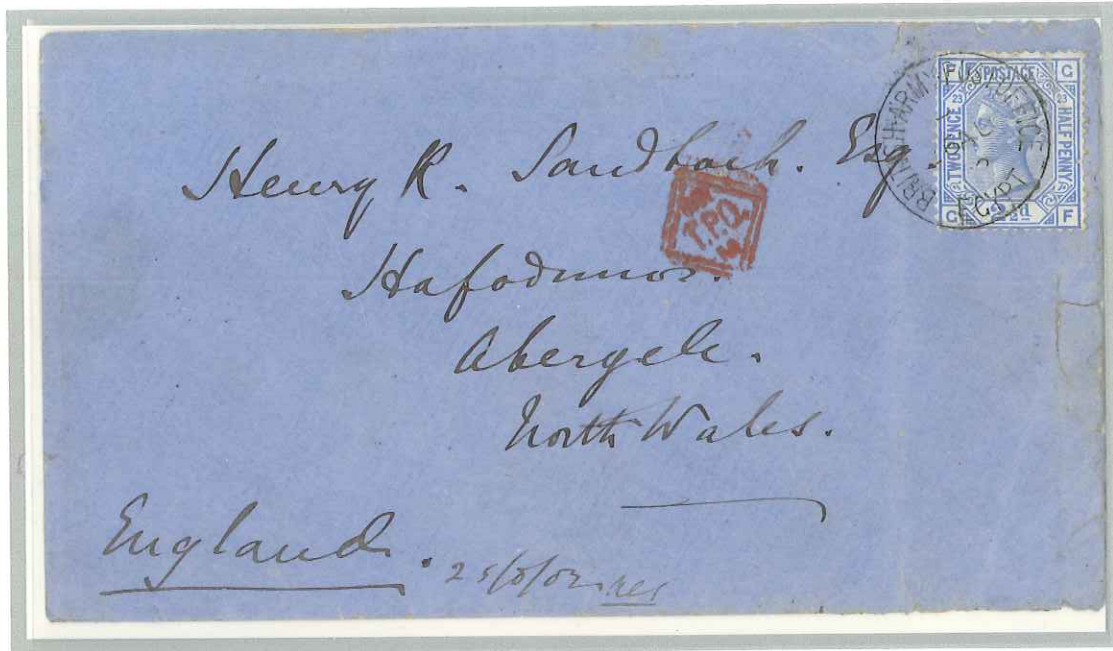 BRITISH ARMY POST OFFICE
EGYPT
F POSTAGE G
23 23
TWOPENCE HALFPENNY
G F
Henry R. Sandbach. Esq.
T.P.O.
Hafodunos.
Abergele.
North Wales.
England.